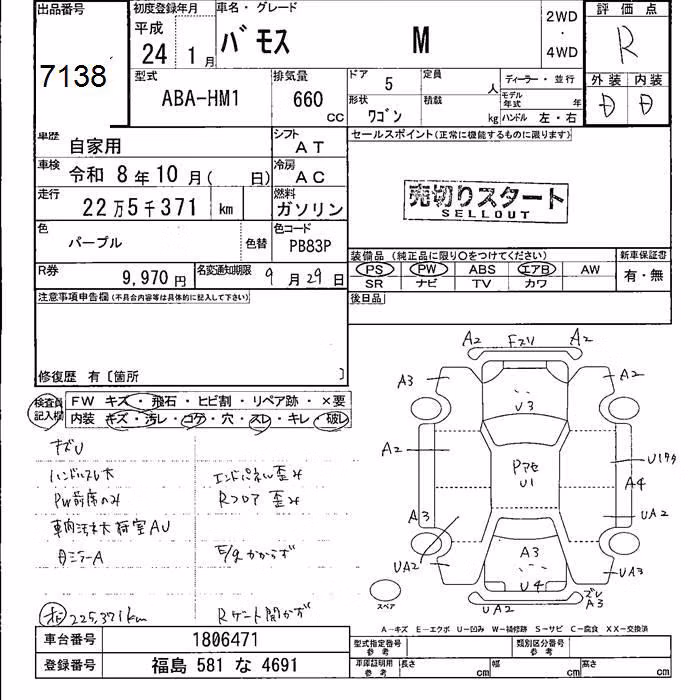 出品番号
7138
初度登録年月
平成
24 1月
車名・グレード
バモス M
2WD
・
4WD
評価点
R
外装 内装
D D
型式
ABA-HM1
排気量
660
CC
ドア 5
定員 人
形状
ワゴン
積載 kg
ディーラー・並行
モデル年式 年
ハンドル 左・右
車歴
自家用
シフト
AT
車検
令和 8年 10月( 日)
冷房
AC
走行
22万5千371 km
燃料
ガソリン
色
パープル
色替
色コード
PB83P
R券
9,970円
名変通知期限
9月29日
セールスポイント(正常に機能するものに限ります)
売切りスタート
SELLOUT
装備品(純正品に限り○をつけてください)
PS PW ABS エアB AW
SR ナビ TV カワ
新車保証書
有・無
後日品
注意事項申告欄(不具合内容等は具体的に記入して下さい)
修復歴 有〔箇所 〕
検査員記入欄
FW キズ・飛石・ヒビ割・リペア跡・×要
内装 キズ・汚レ・コゲ・穴・スレ・キレ・破レ
ハンドルスレ大
エンドパネル歪み
PW前席のみ
Rフロア 歪み
車内汚れ大 荷室AU
ミラーA
E/gかからず
225,371km
Rゲート開かず
A2 Fスリ A2
A3 A2
U3
A2
Pアセ
U1
A4
A3 UA2
UA2 A3 UA3
U4
UA2 ズレ
A3
スペア
A―キズ E―エクボ U―凹み W―補修跡 S―サビ C―腐食 XX―交換済
車台番号 1806471
登録番号 福島 581 な 4691
型式指定番号
参考
類別区分番号
参考
車庫証明用
参考
長さ cm 幅 cm 高さ cm